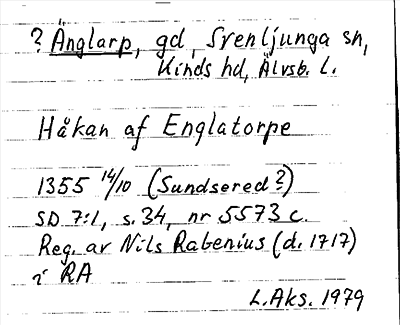 ? Änglarp, gd, Svenljunga sn,
Kinds hd, Älvsb. l.
Håkan af Englatorpe
1355 14/10 (Sundsered?)
SD 7:1, s. 34, nr 5573 c.
Reg. av Nils Rabenius (d. 1717)
i RA
L. Aks. 1979